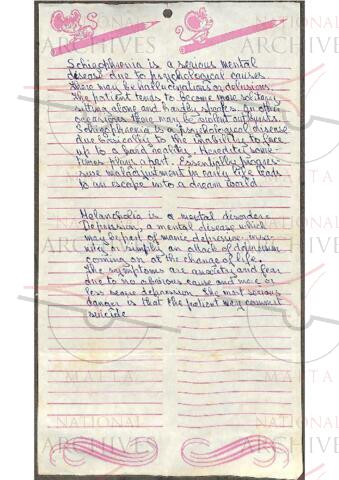 Schizophrenia is a serious mental
disease due to psychological causes
There may be hallucinations or delusions.
The patient tends to become more solitary,
sitting alone and hardly speaks. On other
occasions there may be violent outbursts.
Schizophrenia is a psychological disease
due basically to the inability to face
up to a hard reality. Heredity some
times plays a part. Essentially progres-
sive maladjustment in early life leads
to an escape into a dream world.
Melancholia is a mental disorder:-
Depression, a mental disease which
may be part of manic depressive insa-
nity or simply an attack of depression
coming on at the change of life.
The symptoms are anxiety and fear
due to no obvious cause and more or
less severe depression. The most serious
danger is that the patient may commit
suicide
NATIONAL
ARCHIVES
MALTA